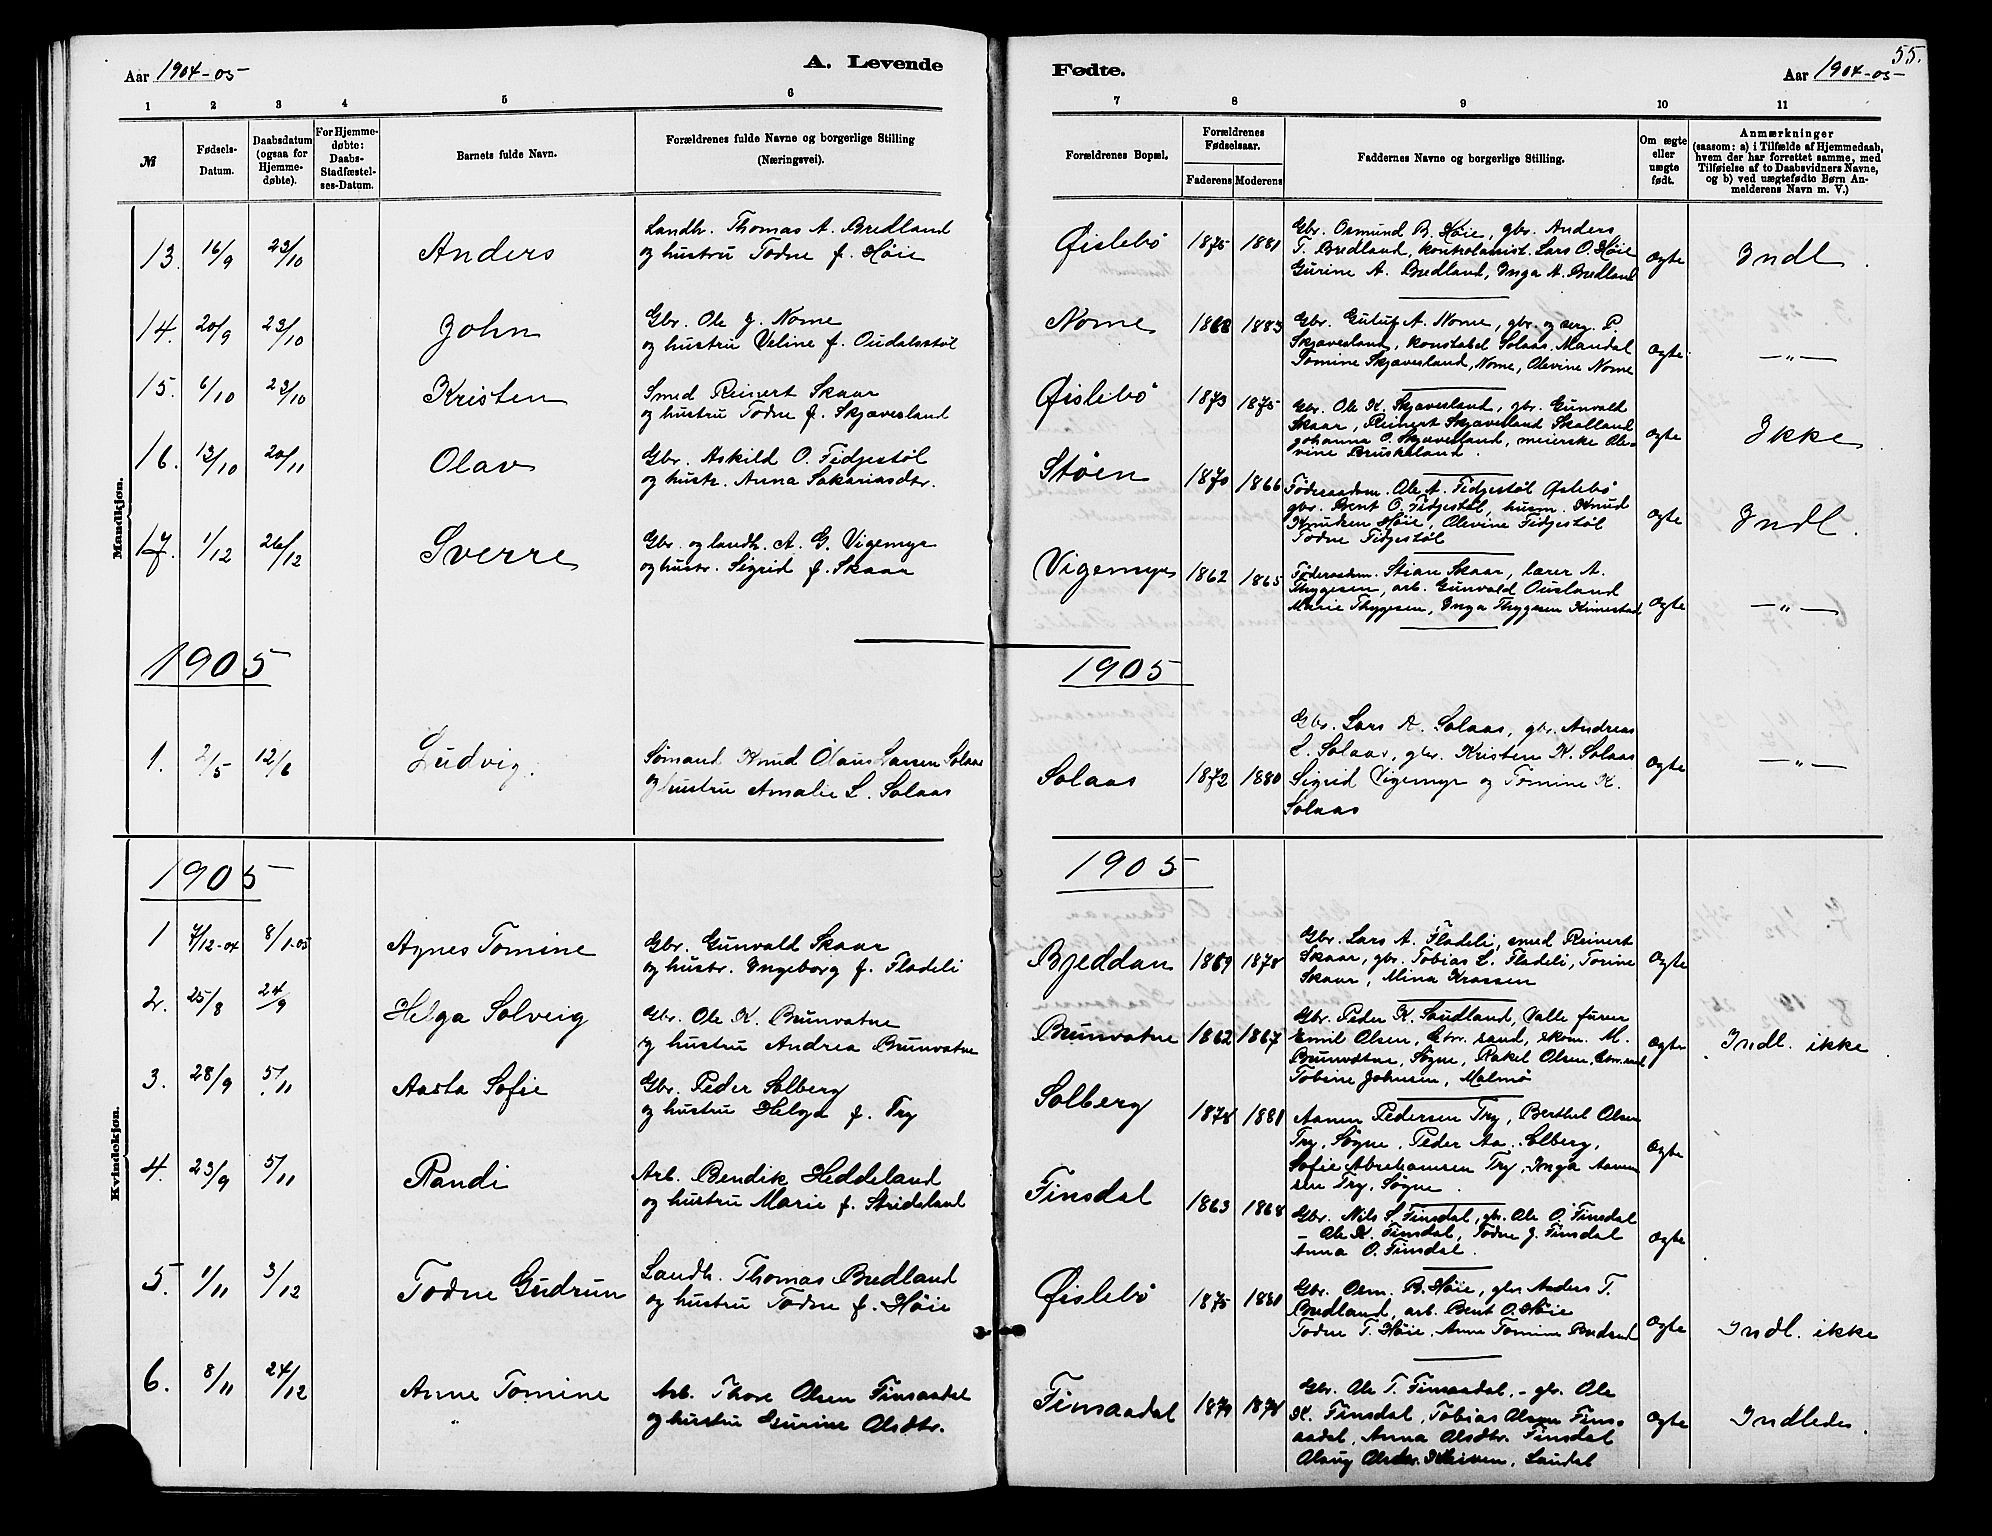 55.
Aar 1904-05
A. Levende
Fødte.
Aar 1904-05
1 2 3 4 5 6
7 8 9 10 11
№
Fødsels-
Datum.
Daabsdatum
(ogsaa for
Hjemme-
døbte).
For Hjemme-
døbte:
Daabs-
Stadfæstel-
ses-Datum.
Barnets fulde Navn.
Forældrenes fulde Navne og borgerlige Stilling
(Næringsvei).
Forældrenes Bopæl.
Forældrenes
Fødselsaar.
Faderens Moderens
Faddernes Navne og borgerlige Stilling.
Om ægte
eller
uægte
født.
Anmærkninger
(saasom: a) i Tilfælde af Hjemmedaab,
hvem der har forrettet samme, med
Tilføielse af to Daabsvidners Navne,
og b) ved uægtefødte Børn An-
melderens Navn m. V.)
Mandkjøn.
13. 16/9 23/10 Anders
Landh. Thomas A. Bredland
og hustru Todne f. Høie
Øislebö 1875 1881
Gbr. Osmund B. Høie, gbr. Anders
T. Bredland, kontrolasist. Lars O. Høie
Gurine A. Bredland, Inga A. Bredland
Ogte Indl.
14. 20/9 23/10 John
Gbr. Ole J. Nome
og hustru Veline f. Oudalsstöl
Nome 1868 1883
Gbr. Guluf A. Nome, gbr. og serg. P.
Skjævesland, konstabel Solaas. Mandal
Tomine Skjævesland, Nome, Olevine Nome
Ogte —"—
15. 6/10 23/10 Kristen
Smed Reinert Skaar
og hustru Todne f. Skjævesland
Øislebö 1873 1875
Gbr. Ole K. Skjævesland, gbr. Gunvald
Skaar, Reinert Skjævesland Skolland
Johanna O. Skjævesland, meierske Ole-
vine Bruskeland.
Ogte Ikke
16. 13/10 20/11 Olav
Gbr. Askild O. Fidjestöl
og hustr. Anna Sakariasdtr.
Stöen 1870 1866
Föderaadsm. Ole A. Fidjestöl Øslebö
gbr. Bent O. Fidjestöl, husm. Knud
Knudsen Høie, Olevine Fidjestöl
Todne Fidjestöl
Ogte Indl.
17. 1/12 26/12 Sverre
Gbr. og landh. A. G. Vigemyr
og hustr. Sigrid f. Skaar
Vigemyr 1862 1865
Föderadsm. Stian Skaar, lærer A.
Thygesen, arb. Gunvald Ousland
Marie Thygesen, Inga Thygesen Kinnestad
Ogte —"—
1905
1905
1. 2/5 12/6 Ludvig.
Sömand Knud Olaus Larsen Solaas
og hustru Amalie L. Solaas
Solaas 1872 1880
Gbr. Lars A. Solaas, gbr. Andreas
L. Solaas, gbr. Kristen K. Solaas
Sigrid Vigemyr og Tomine K.
Solaas
Ogte —"—
Kvindekjøn.
1905
1905
1 7/12-04 8/1-05 Agnes Tomine
Gbr. Gunvald Skaar
og hustr. Ingeborg f. Fladeli
Bjeddan 1869 1878
Gbr. Lars A. Fladeli, smed Reinert
Skaar, gbr. Tobias L. Fladeli, Torine
Skaar, Mina Krossen
Ogte
2. 25/8 24/9 Helga Solveig
Gbr. Ole K. Brunvatne
og hustru Andrea Brunvatne
Brunvatne 1862 1867
Gbr. Peder K. Saudland, Valle furer
Emil Olsen, Chr.sand, skom. M.
Brunvatne, Søgne, Rakel Olsen, Chr.sand
Tobine Johnsen, Malmö
Ogte Indl. ikke
3. 28/9 5/11 Aasta Sofie
Gbr. Peder Solberg
og hustru Helga f. Try
Solberg 1874 1881
Aanen Pedersen Try, Berthel Olsen
Try, Søgne, Peder Aa. Solberg,
Sofie Abrahamsen Try, Inga Aanen
sen Try, Søgne.
Ogte
4. 23/9 5/11 Randi
Arb. Bendik Heddeland
og hustru Marie f. Strideland
Finsdal 1863 1864
Gbr. Nils S. Finsdal, gbr. Ole O. Finsdal
— Ole K. Finsdal, Todne J. Finsdal
Anna O. Finsdal.
Ogte
5. 1/11 3/12 Todne Gudrun
Landh. Thomas Bredland
og hustru Todne f. Høie
Øislebö 1875 1881
Gbr. Osm. B. Høie, gbr. Anders T.
Bredland, arb. Bent O. Høie
Todne T. Høie, Anne Tomine Bredland
Ogte Indl. ikke
6. 8/11 24/12 Anne Tomine
Arb. Thore Olsen Finsaadal
og hustru Gurine Olsdtr.
Finsaadal 1870 1874
Gbr. Ole T. Finsaadal, — gbr. Ole
K. Finsdal, Tobias Olsen Fins-
aadal, Anna Olsdtr. Finsdal
Olaug Olsdtr. , Laudal
Ogte Indledes